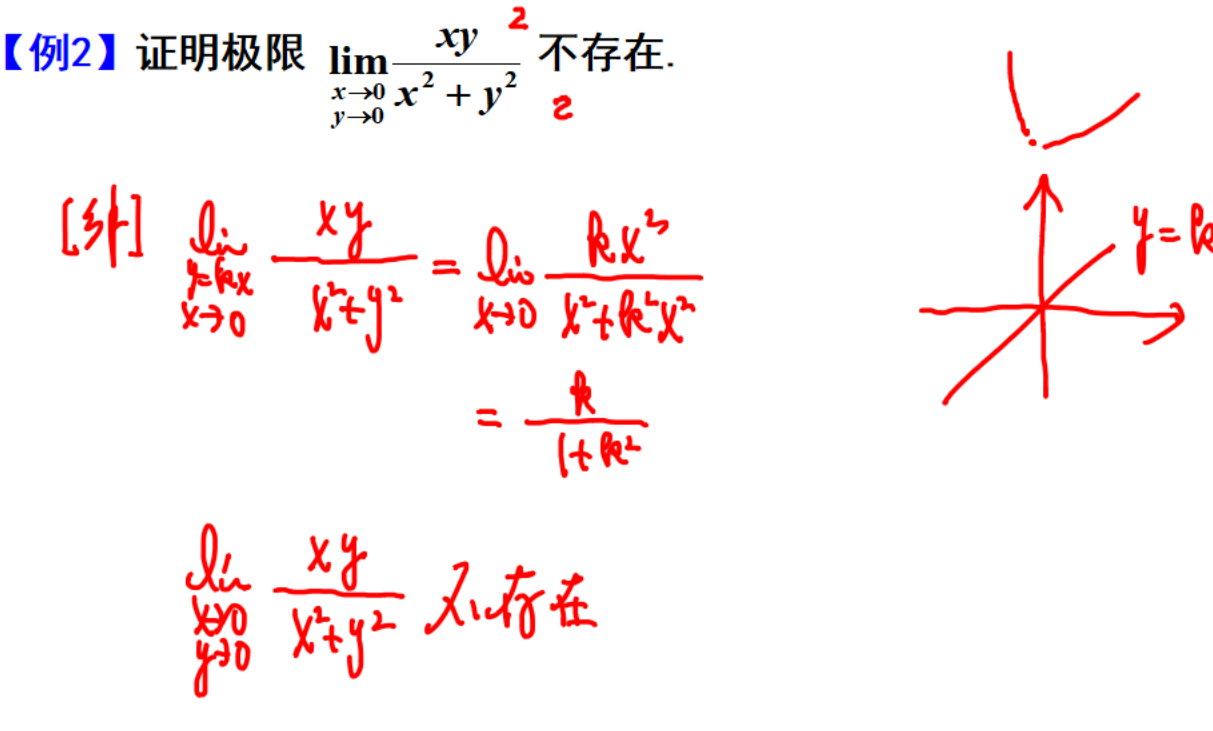 【例2】证明极限 lim x→0 y→0 xy / x² + y² 不存在.
2
2
[解] lim y=kx x→0 xy / x²+y² = lim x→0 kx² / x²+k²x²
y=k
= k / 1+k²
lim x→0 y→0 xy / x²+y² 不存在